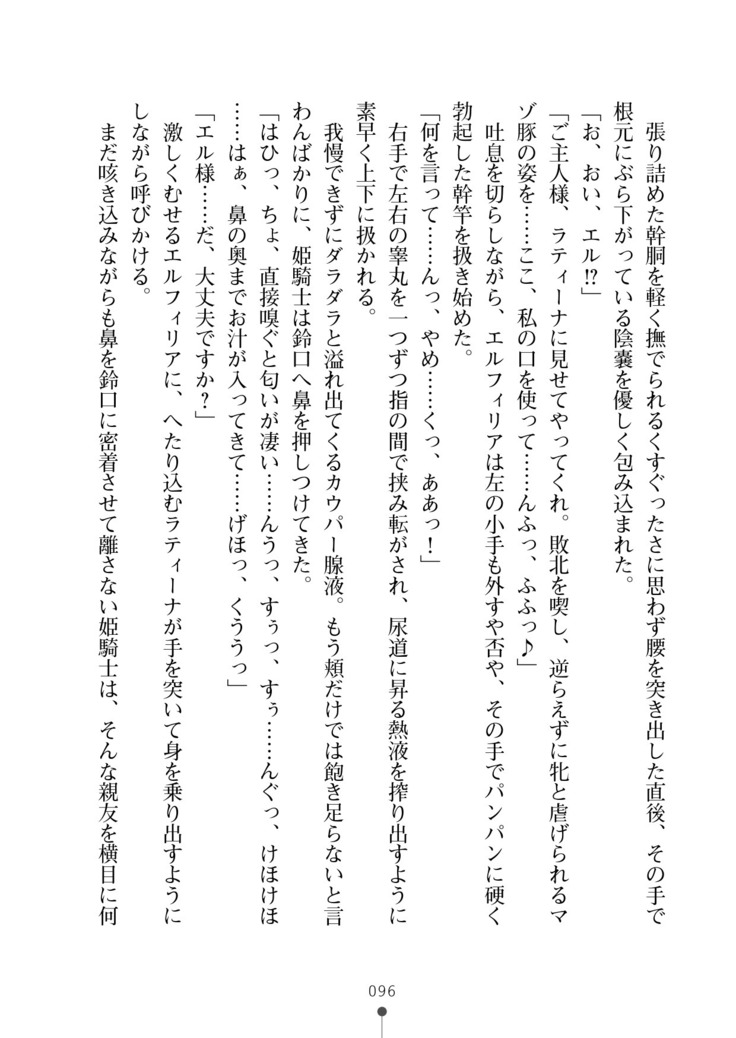 張り詰めた幹胴を軽く撫でられるくすぐったさに思わず腰を突き出した直後、その手で
根元にぶら下がっている陰嚢を優しく包み込まれた。
「お、おい、エル⁉」
「ご主人様、ラティーナに見せてやってくれ。敗北を喫し、逆らえずに牝と虐げられるマ
ゾ豚の姿を……ここ、私の口を使って……んふっ、ふふっ♪」
吐息を切らしながら、エルフィリアは左の小手も外すや否や、その手でパンパンに硬く
勃起した幹竿を扱き始めた。
「何を言って……んっ、やめ……くっ、ああっ！」
右手で左右の睾丸を一つずつ指の間で挟み転がされ、尿道に昇る熱液を搾り出すように
素早く上下に扱かれる。
我慢できずにダラダラと溢れ出てくるカウパー腺液。もう頬だけでは飽き足らないと言
わんばかりに、姫騎士は鈴口へ鼻を押しつけてきた。
「はひっ、ちょ、直接嗅ぐと匂いが凄い……んうっ、すぅっ、すぅ……んぐっ、けほけほ
……はぁ、鼻の奥までお汁が入ってきて……げほっ、くううっ」
「エル様……だ、大丈夫ですか？」
激しくむせるエルフィリアに、へたり込むラティーナが手を突いて身を乗り出すように
しながら呼びかける。
まだ咳き込みながらも鼻を鈴口に密着させて離さない姫騎士は、そんな親友を横目に何
096